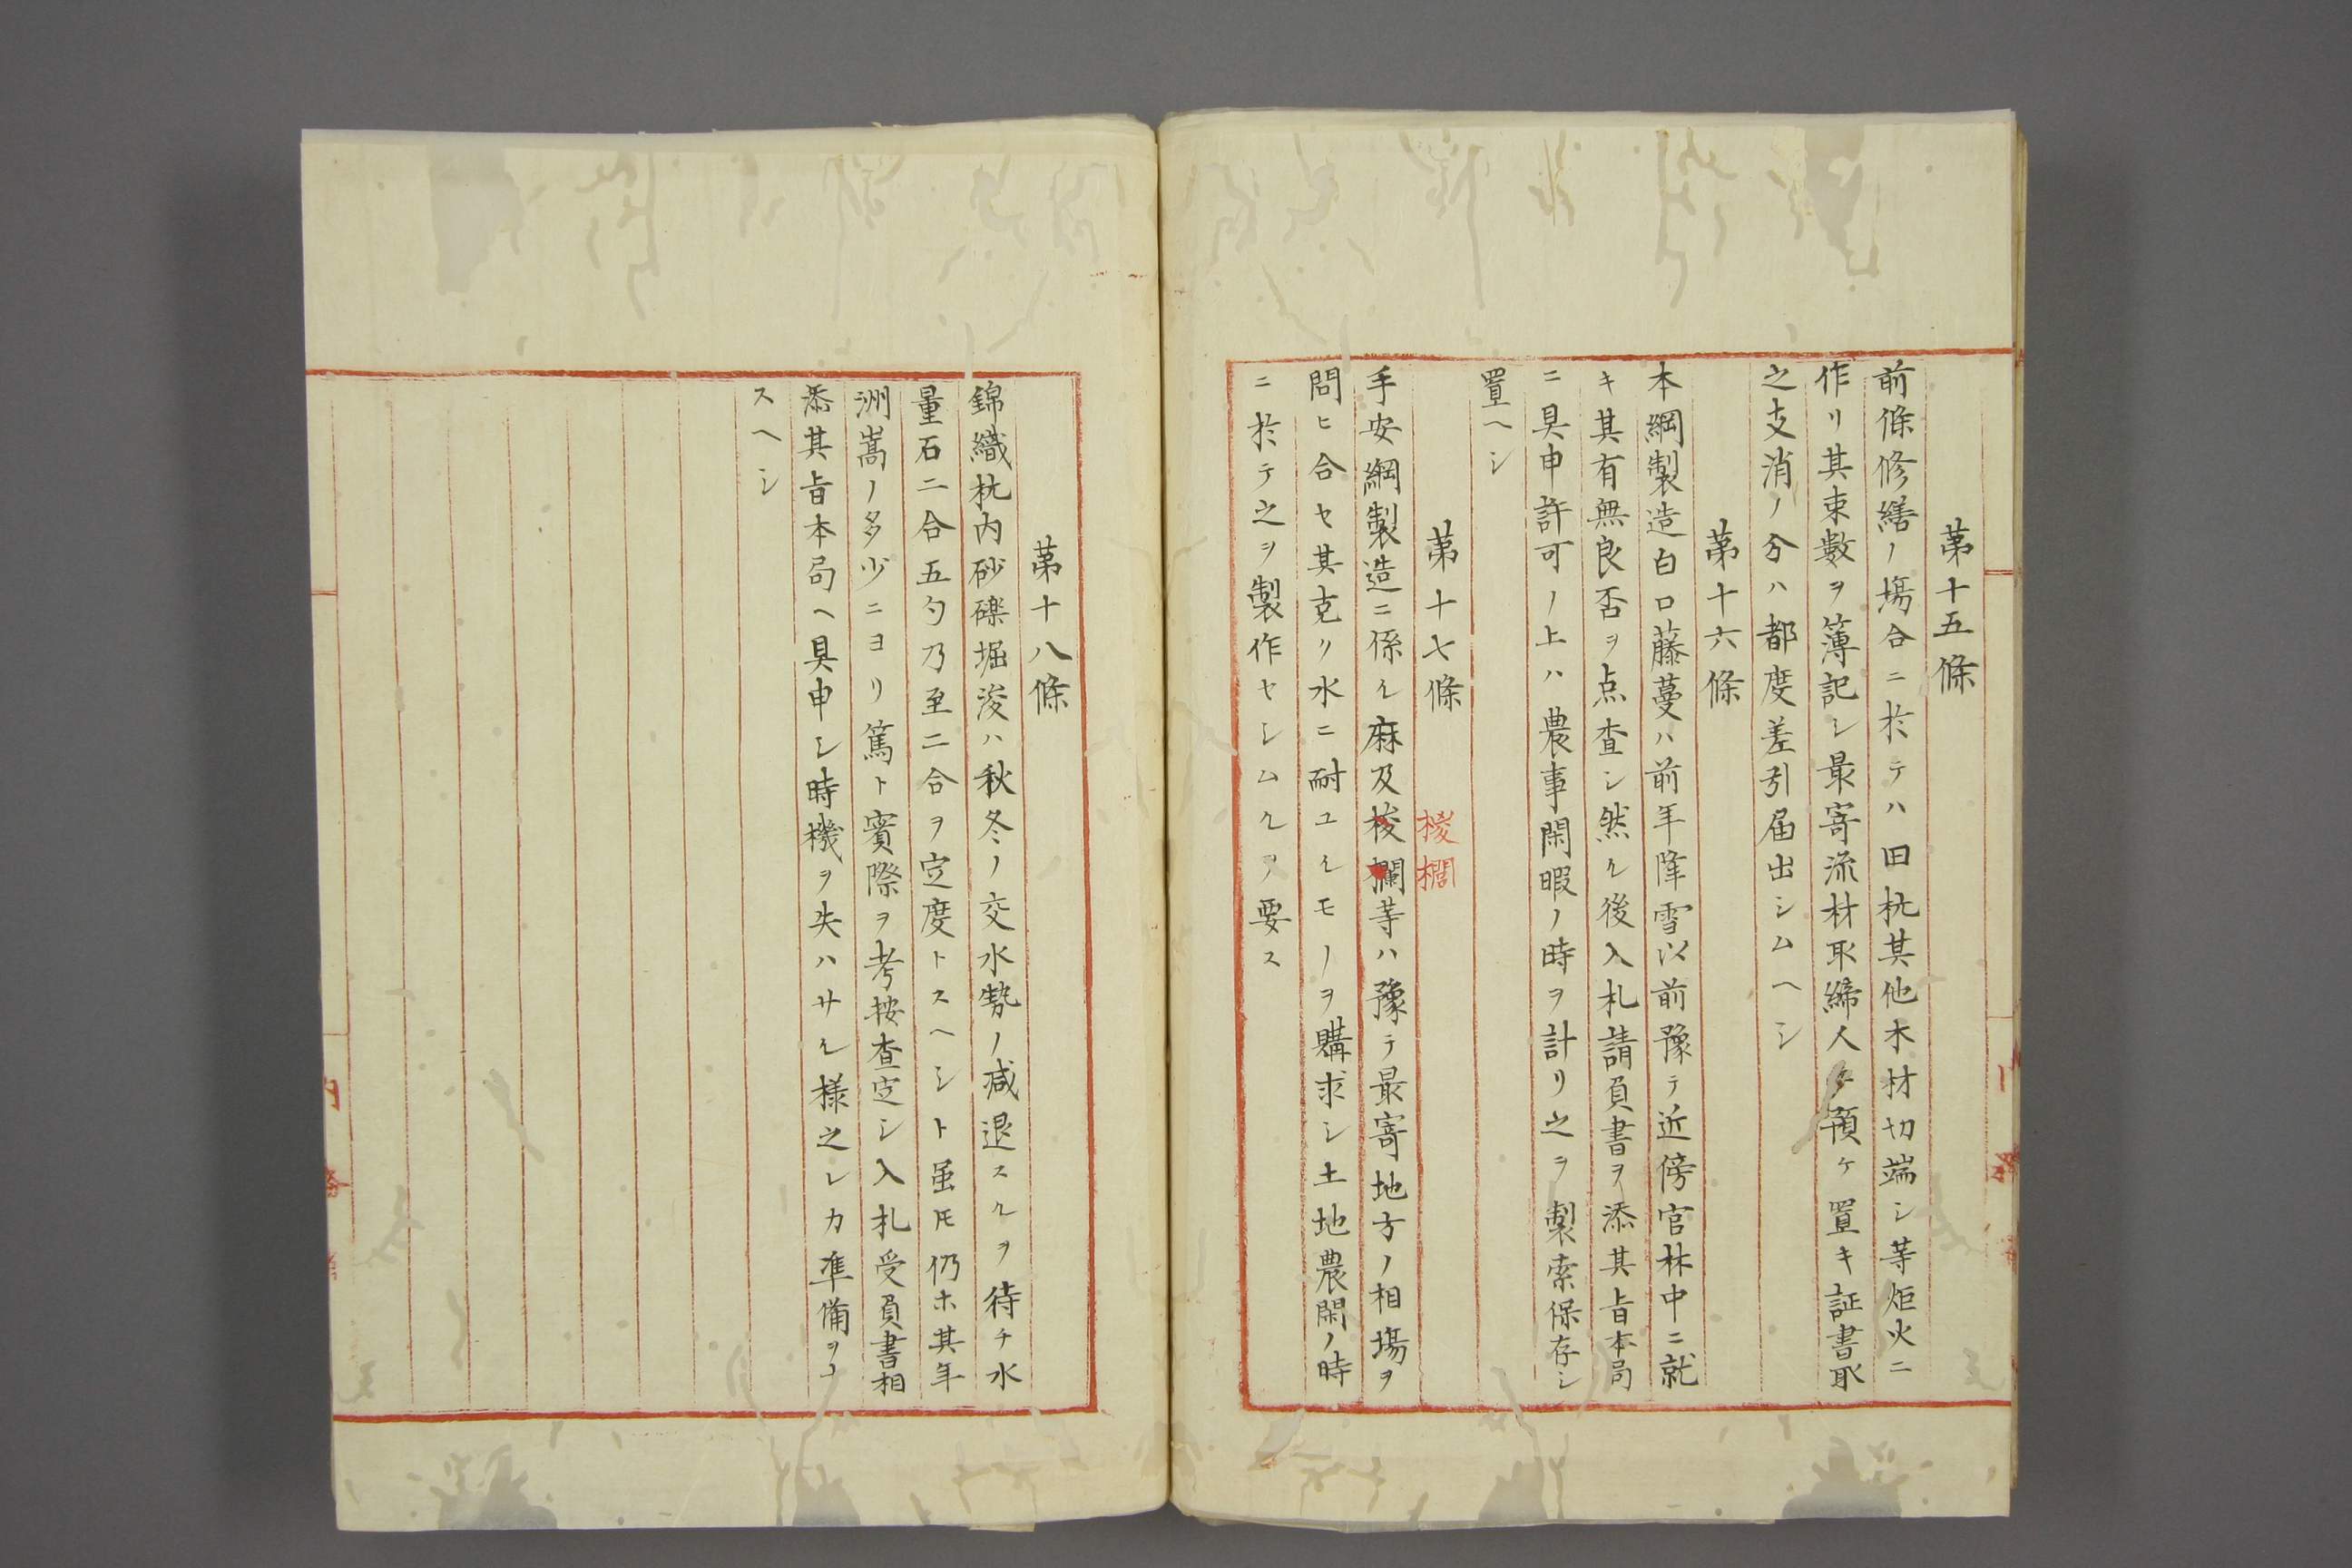 第十五條
前條修繕ノ塲合ニ於テハ田杭其他木材切端シ等炬火ニ
作リ其束數ヲ簿記シ最寄流材取締人ヘ預ケ置キ証書取
之支消ノ分ハ都度差引届出シムヘシ
第十六條
本綱製造白口藤蔓ハ前年降雪以前豫テ近傍官林中ニ就
キ其有無良否ヲ点査シ然ル後入札請負書ヲ添其旨本局
ニ具申許可ノ上ハ農事閑暇ノ時ヲ計リ之ヲ製索保存シ
置ヘシ
第十七條
椶櫚
手安綱製造ニ係ル麻及棱欄等ハ豫テ最寄地方ノ相塲ヲ
問ヒ合セ其克リ水ニ耐ユルモノヲ購求シ土地農閑ノ時
ニ於テ之ヲ製作セシムルヲ要ス
第十八條
錦織杭内砂礫堀浚ハ秋冬ノ交水勢ノ減退スルヲ待チ水
量石二合五勺乃至二合ヲ定度トスヘシト虽𪜈仍ホ其年
洲嵩ノ多少ニヨリ篤ト實際ヲ考按査定シ入札受負書相
添其旨本局ヘ具申シ時機ヲ失ハサル様之レカ準備ヲナ
スヘシ